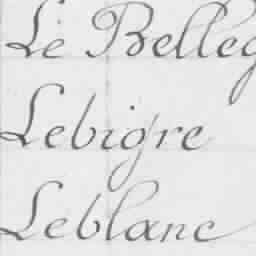 Le Belleg
Lebigre
Leblanc